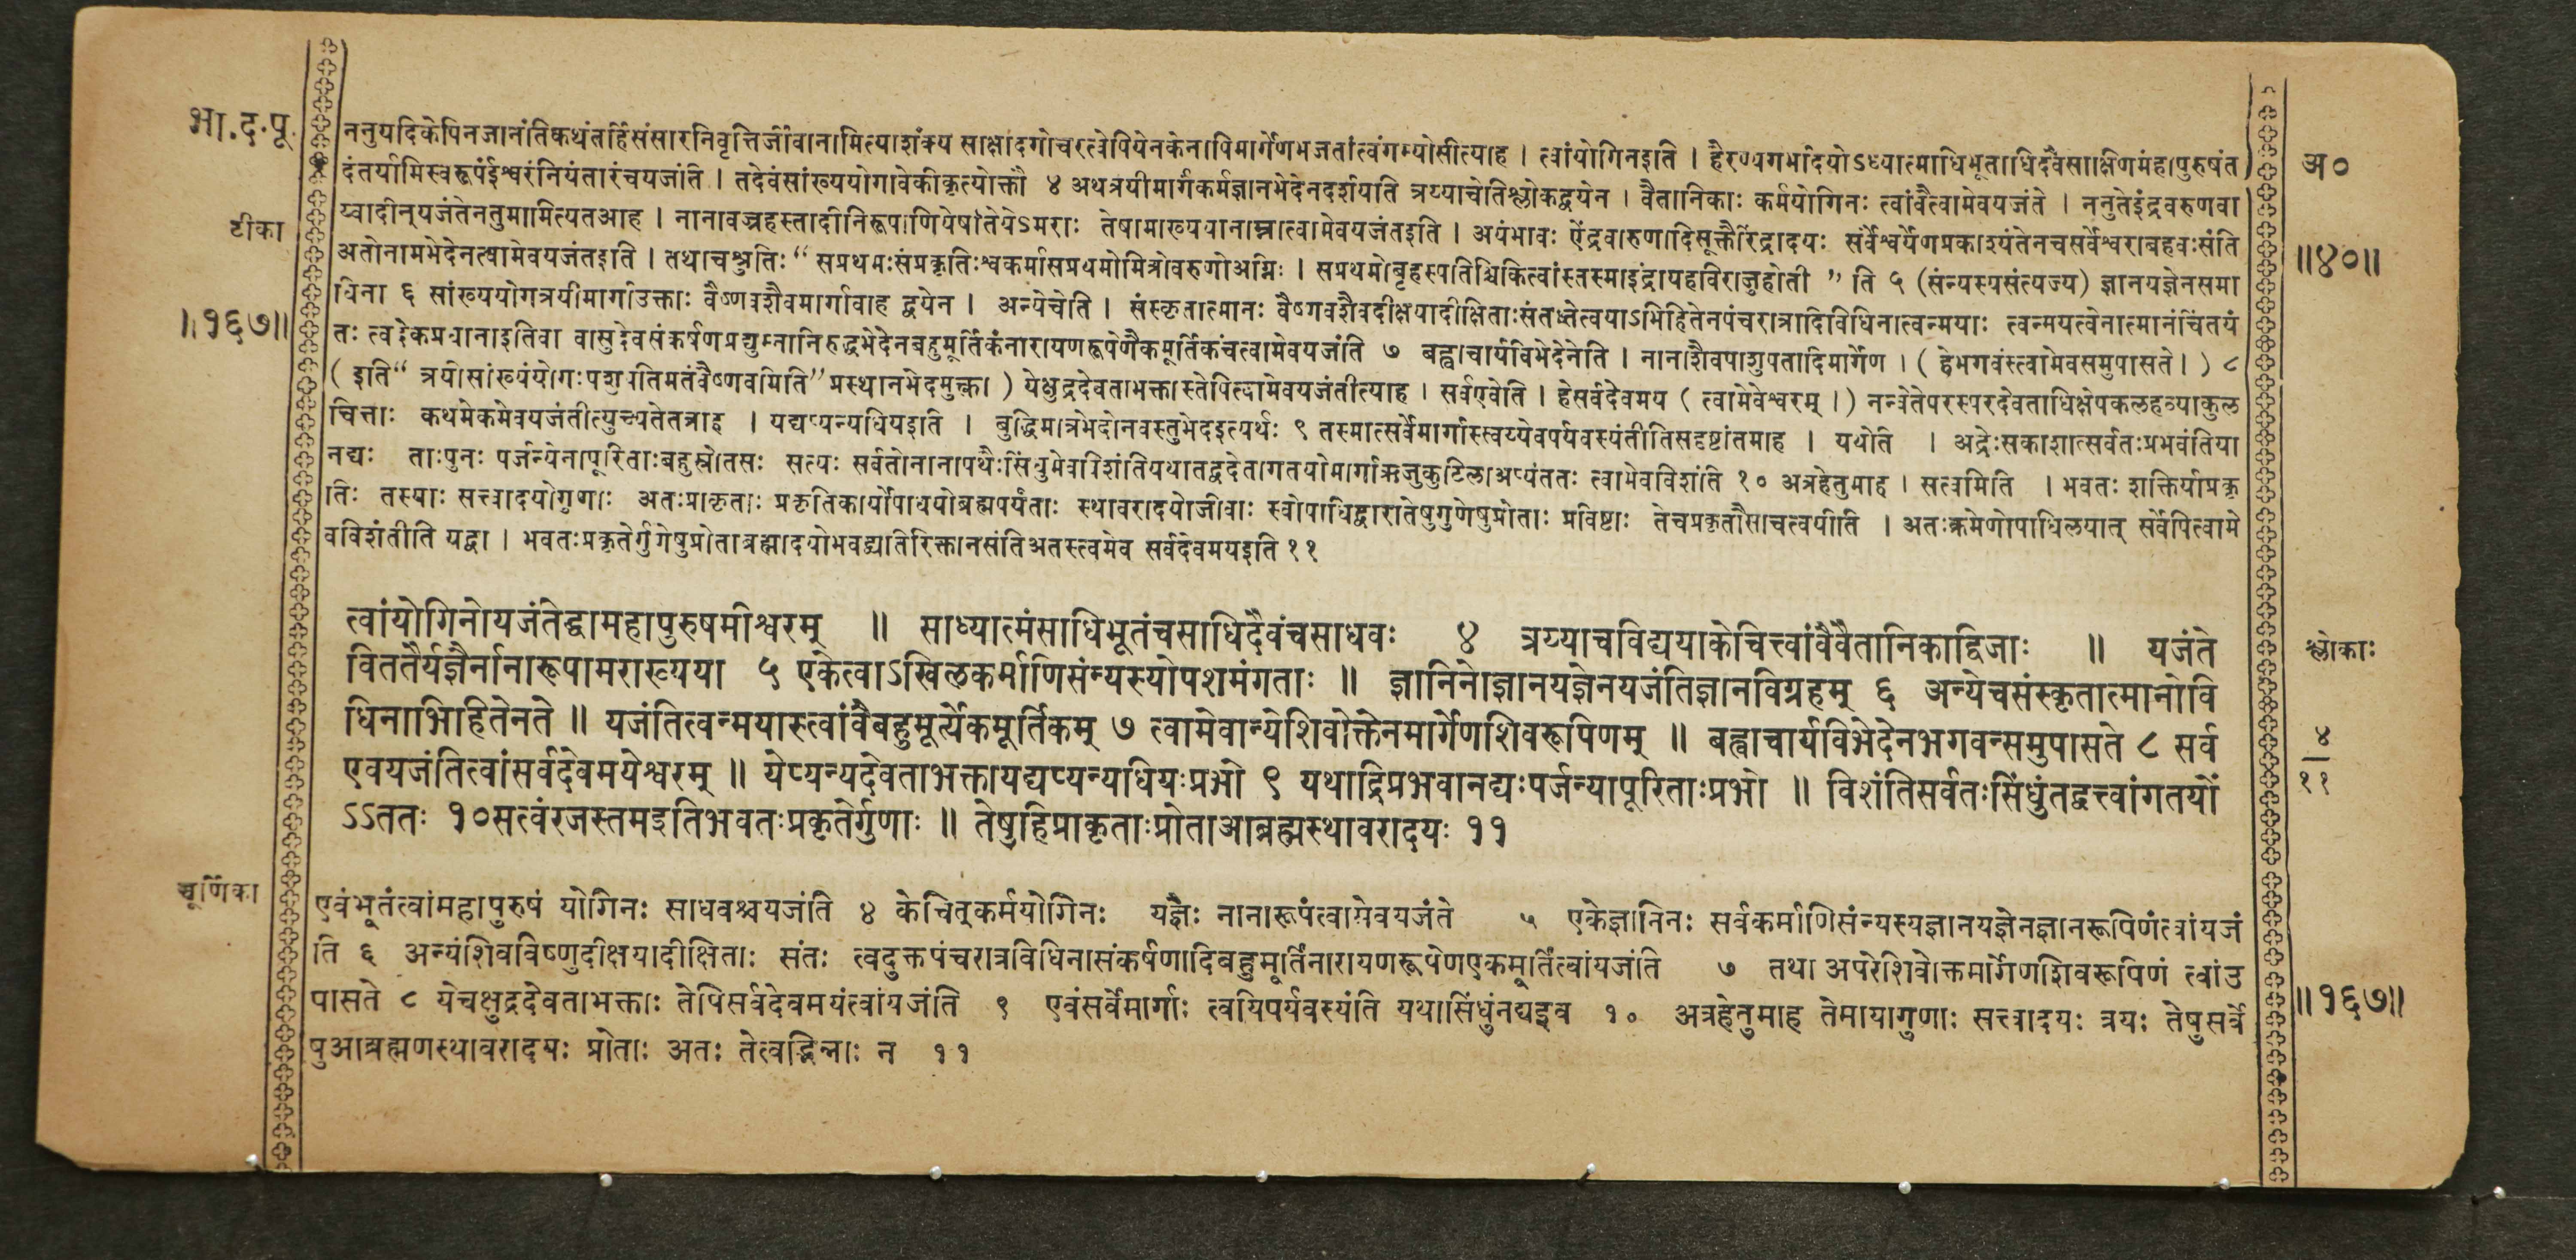 भा.द.पू.
अ०
ननुयदिकेपिनजानंतिकथंतर्हिसंसारनिवृत्तिर्जीवानामित्याशंक्य साक्षादगोचरत्वेपियेनकेनापिमार्गेणभजतांत्वंगम्योसीत्याह । त्वांयोगिनइति । हैरण्यगर्भादयोऽध्यात्माधिभूताधिदैवसाक्षिणंमहापुरुषंत
दंतर्यामिस्वरूपंईश्वरंनियंतारंचयजंति । तदेवंसांख्ययोगावेकीकृत्योक्तौ ४ अथत्रयीमार्गंकर्मज्ञानभेदेनदर्शयति त्रय्याचेतिश्लोकद्वयेन । वैतानिकाः कर्मयोगिनः त्वांवैत्वामेवयजंते । ननुतेइंद्रवरुणवा
टीका
य्वादीन्यजंतेनतुमामित्यतआह । नानावज्रहस्तादीनिरूपाणियेषांतेयेऽमराः तेषामाख्ययानाम्नात्वामेवयजंतइति । अयंभावः ऐंद्रवारुणादिसूक्तैरिंद्रादयः सर्वेश्वर्येणप्रकाश्यंतेनचसर्वेश्वराबहवःसंति
॥४०॥
अतोनामभेदेनत्वामेवयजंतइति । तथाचश्रुतिः “ सप्रथमःसंप्रकृतिःश्वकर्मासप्रथमोमित्रोवरुणोअग्निः । सप्रथमोबृहस्पतिश्चिकित्वांस्तस्माइंद्रायहविराजुहोती ” ति ५ (संन्यस्यसंत्यज्य) ज्ञानयज्ञेनसमा
॥१६७॥
धिना ६ सांख्ययोगत्रयीमार्गाउक्ताः वैष्णवशैवमार्गावाह द्वयेन । अन्येचेति । संस्कृतात्मानः वैष्णवशैवदीक्षयादीक्षिताःसंतस्तेत्वयाऽभिहितेनपंचरात्रादिविधिनात्वन्मयाः त्वन्मयत्वेनात्मानंचिंतयं
तः त्वदेकप्रधानाइतिवा वासुदेवसंकर्षणप्रद्युम्नानिरुद्धभेदेनबहुमूर्तिकंनारायणरूपेणैकमूर्तिकंचत्वामेवयजंति ७ बह्वाचार्यविभेदेनेति । नानाशैवपाशुपतादिमार्गेण । ( हेभगवंस्त्वामेवसमुपासते। ) ८
( इति“ त्रयीसांख्यंयोगःपशुपतिमतंवैष्णवमिति”प्रस्थानभेदमुक्त्वा ) येक्षुद्रदेवताभक्तास्तेपित्वामेवयजंतीत्याह । सर्वएवेति । हेसर्वदेवमय ( त्वामेवेश्वरम् ।) नन्वेतेपरस्परदेवताधिक्षेपकलहव्याकुल
चित्ताः कथमेकमेवयजंतीत्युच्यतेतत्राह । यद्यप्यन्यधियइति । बुद्धिमात्रभेदोनवस्तुभेदइत्यर्थः ९ तस्मात्सर्वेमार्गास्त्वय्येवपर्यवस्यंतीतिसदृष्टांतमाह । यथेति । अद्रेःसकाशात्सर्वतःप्रभवंतिया
नद्यः ताःपुनः पर्जन्येनापूरिताःबहुस्रोतसः सत्यः सर्वतोनानापथैःसिंधुमेवविशंतियथातद्वदेतागतयोमार्गाऋजुकुटिलाअप्यंततः त्वामेवविशंति १० अत्रहेतुमाह । सत्वमिति । भवतः शक्तिर्याप्रकृ
तिः तस्याः सत्त्वादयोगुणाः अतःप्राकृताः प्रकृतिकार्योपाधयोब्रह्मपर्यंताः स्थावरादयोजीवाः स्वोपाधिद्वारातेषुगुणेषुप्रोताः प्रविष्टाः तेचप्रकृतौसाचत्वयीति । अतःक्रमेणोपाधिलयात् सर्वेपित्वामे
वविशंतीति यद्वा । भवतःप्रकृतेर्गुणेषुप्रोताब्रह्मादयोभवद्व्यतिरिक्तानसंतिअतस्त्वमेव सर्वदेवमयइति ११
त्वांयोगिनोयजंतेद्धामहापुरुषमीश्वरम् ॥ साध्यात्मंसाधिभूतंचसाधिदैवंचसाधवः ४ त्रय्याचविद्ययाकेचित्त्वांवैवैतानिकाद्विजाः ॥ यजंते
श्लोकाः
विततैर्यज्ञैर्नानारूपामराख्यया ५ एकेत्वाऽखिलकर्माणिसंन्यस्योपशमंगताः ॥ ज्ञानिनोज्ञानयज्ञेनयजंतिज्ञानविग्रहम् ६ अन्येचसंस्कृतात्मानोवि
धिनाभिहितेनते ॥ यजंतित्वन्मयास्त्वांवैबहुमूर्त्येकमूर्तिकम् ७ त्वामेवान्येशिवोक्तेनमार्गेणशिवरूपिणम् ॥ बह्वाचार्यविभेदेनभगवन्समुपासते ८ सर्व
४
एवयजंतित्वांसर्वदेवमयेश्वरम् ॥ येप्यन्यदेवताभक्तायद्यप्यन्यधियःप्रभो ९ यथाद्रिप्रभवानद्यःपर्जन्यापूरिताःप्रभो ॥ विशंतिसर्वतःसिंधुंतद्वत्त्वांगतयों
११
ऽऽततः १०सत्वंरजस्तमइतिभवतःप्रकृतेर्गुणाः ॥ तेषुहिप्राकृताःप्रोताआब्रह्मस्थावरादयः ११
चूर्णिका
एवंभूतंत्वांमहापुरुषं योगिनः साधवश्चयजंति ४ केचित्कर्मयोगिनः यज्ञैः नानारूपंत्वामेवयजंते ५ एकेज्ञानिनः सर्वकर्माणिसंन्यस्यज्ञानयज्ञेनज्ञानरूपिणंत्वांयजं
ति ६ अन्यंशिवविष्णुदीक्षयादीक्षिताः संतः त्वदुक्तपंचरात्रविधिनासंकर्षणादिबहुमूर्तिंनारायणरूपेणएकमूर्तिंत्वांयजंति ७ तथा अपरेशिवोक्तमार्गेणशिवरूपिणं त्वांउ
पासते ८ येचक्षुद्रदेवताभक्ताः तेपिसर्वदेवमयंत्वांयजंति ९ एवंसर्वेमार्गाः त्वयिपर्यवस्यंति यथासिंधुंनद्यइव १० अत्रहेतुमाह तेमायागुणाः सत्त्वादयः त्रयः तेषुसर्वे
॥१६७॥
षुआब्रह्मणस्थावरादयः प्रोताः अतः तेत्वद्भिन्नाः न ११